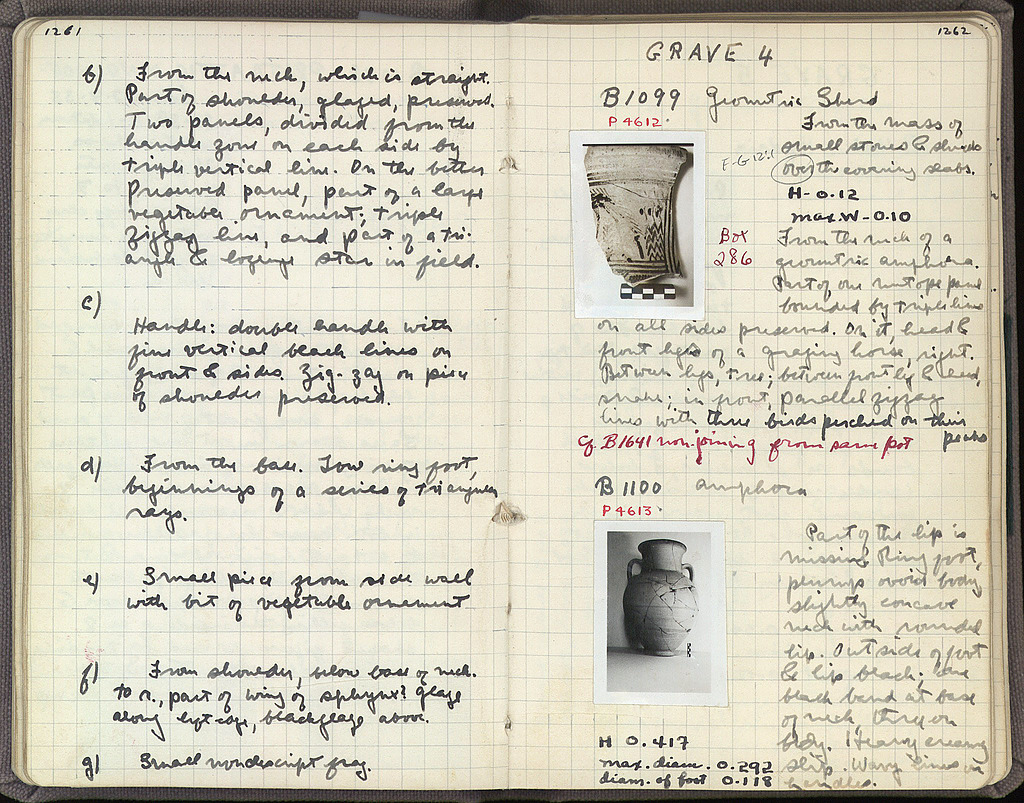 1261
b) From the neck, which is straight.
Part of shoulder, glazed, preserved.
Two panels, divided from the
handle zone on each side by
triple vertical line. On the better
preserved panel, part of a large
vegetable ornament; triple
zigzag line, and part of a tri-
angle & lozenge star in field.
c)
Handle: double handle with
fine vertical black lines on
front & sides. Zig-zag on piece
of shoulder preserved.
d) From the base. Low ring foot,
beginnings of a series of triangular
rays.
e) Small piece from side wall
with bit of vegetable ornament
f) From shoulder, below base of neck.
to r., part of wing of sphynx? glaze
along left edge, black glaze above.
g) Small nondescript frag.
1262
GRAVE 4
B1099 Geometric Sherd
P 4612
From the mass of
small stones & sherds
over the covering slabs.
E-G 12:1
H - 0.12
max. W - 0.10
Box
286
From the neck of a
geometric amphora.
Part of one metope panel
bounded by triple line
on all sides preserved. On it, head &
front legs of a grazing horse, right.
Between legs, tree; between front leg & head,
snake; in front, parallel zigzag
lines with three birds perched on their
peaks
cf. B1641 non-joining from same pot
B 1100 amphora
P 4613
Part of the lip is
missing. Ring foot,
plump ovoid body
slightly concave
neck with rounded
lip. Outside of foot
& lip black; one
black band at base
of neck, three on
body. Heavy creamy
slip. Wavy lines on
handles.
H 0.417
max. diam. 0.292
diam. of foot 0.118